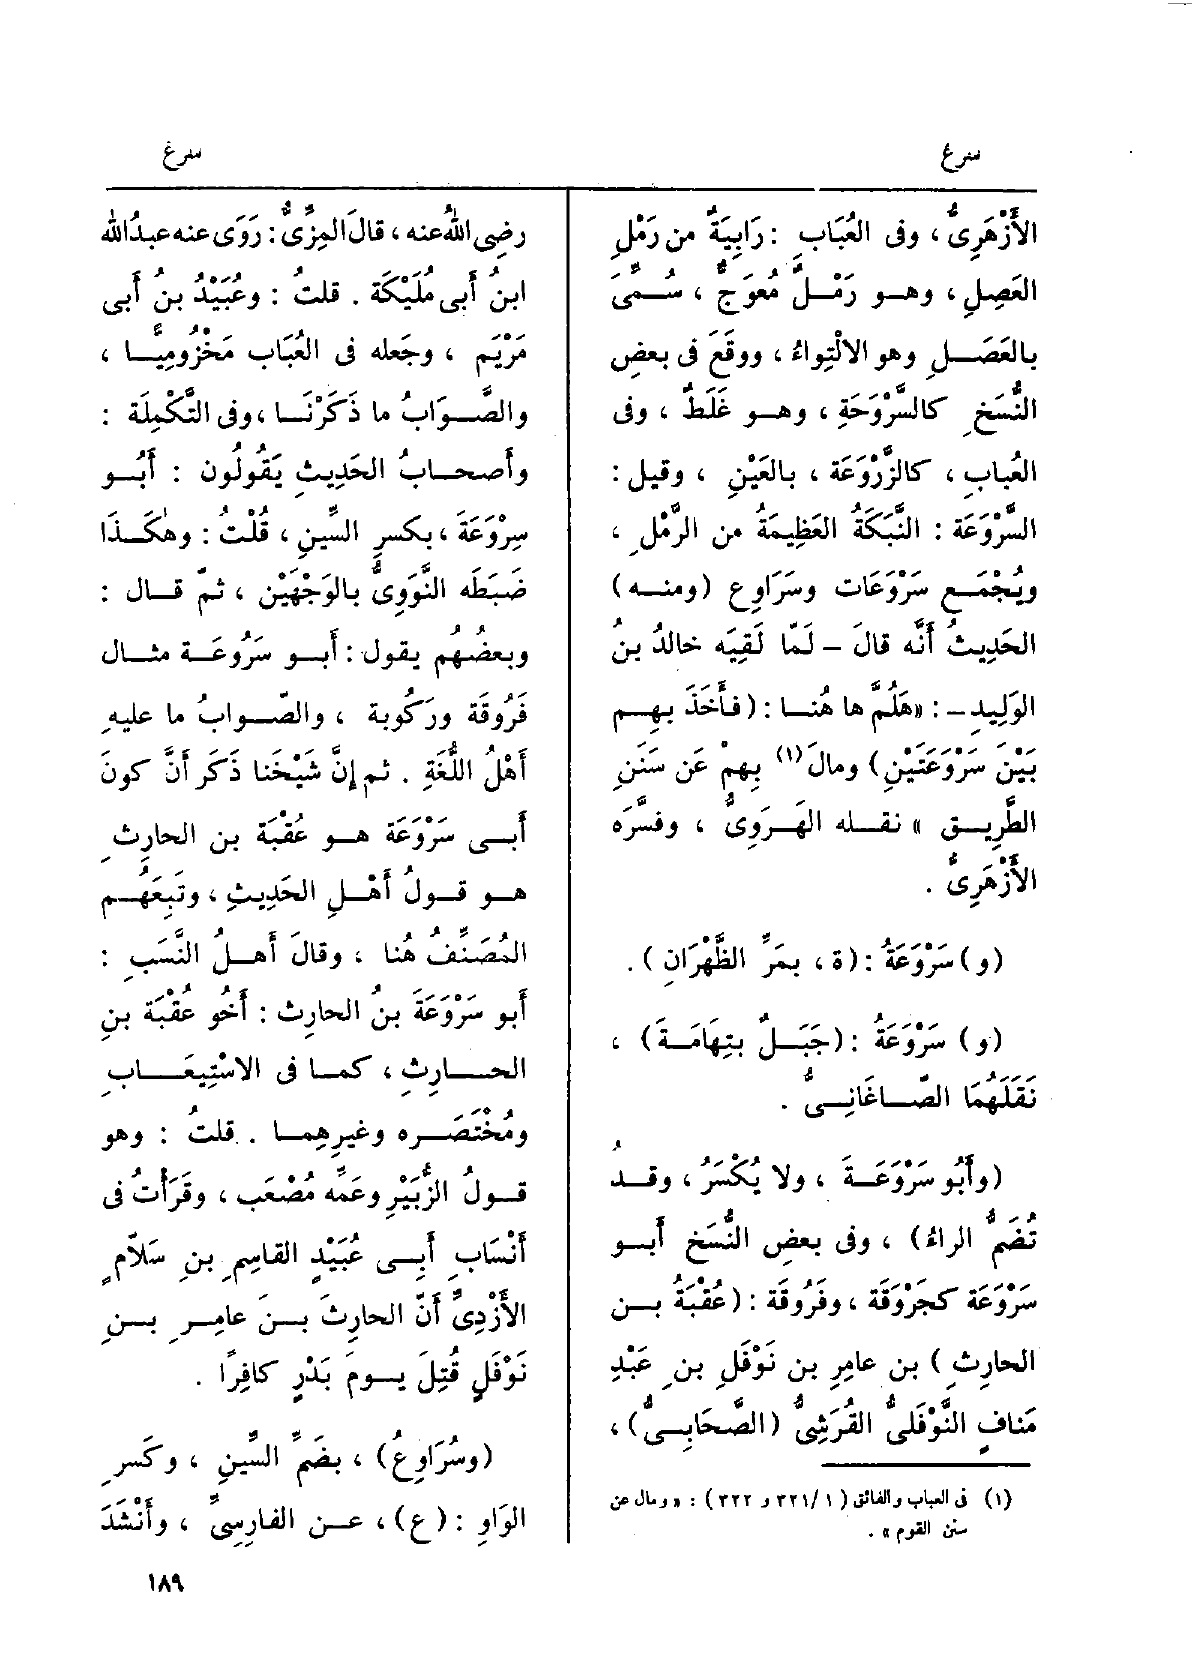 سرع
سرع
الأَزْهَرِىُّ ، وفى العُبَابِ : رَابِيَةٌ من رَمْلِ
العَصِلِ ، وهــو رَمْــلٌ مُعوَجٌّ ، سُــمِّىَ
بالعَصَــلِ وهو الالْتِواءُ ، ووقَعَ فى بعضِ
النُّسَخِ كالسَّرْوَحَةِ ، وهــو غَلَطٌ ، وفى
العُبابِ ، كالزَّرْوَعَة ، بالعَيْنِ ، وقيل :
السَّرْوَعَة : النَّبَكَةُ العَظِيمَةُ من الرَّمْلِ ،
ويُجْمَــع سَرْوَعَات وسَرَاوِع (ومنــه)
الحَدِيثُ أَنَّه قالَ – لَمّا لَقِيَه خالدُ بنُ
الوَلِيدِ – : «هَلُمَّ ها هُنــا : (فأَخَذَ بِهِــم
بَيْنَ سَرْوَعَتَيْنِ) ومالَ(١) بِهِمْ عَن سَنَنِ
الطَّرِيــق » نقــله الهَــرَوِىُّ ، وفسَّرَه
الأَزْهَرِىُّ .
(و) سَرْوَعَةُ : (ة ، بمَرِّ الظَّهْرَانِ ) .
(و) سَرْوَعَةُ : (جَبَــلٌ بتِهَامَــةَ) ،
نَقَلَهُمَا الصّــاغَانِــىُّ .
(وأَبُو سَرْوَعَــةَ ، ولا يُكْسَرُ ، وقــدْ
تُضَمُّ الراءُ) ، وفى بعضِ النُّسَخِ أَبــو
سَرْوَعَة كجَرْوَقَة ، وفَرُوقَة : (عُقْبَةُ بــن
الحارِثِ ) بن عامِرِ بن نَوْفَلِ بنِ عَبْدِ
مَنافٍ النَّوْفَلىُّ القُرَشِىُّ (الصَّحَابِــىُّ) ،
(١) فى العباب والفائق (١/ ٣٢١ و ٣٢٢) : «ومال عن
سنن القوم» .
رضِى اللهُ عنه ، قالَ المِزِّىُّ : رَوَى عنه عبدُ الله
ابنُ أَبى مُلَيْكَة . قلتُ : وعُبَيْدُ بنُ أَبى
مَرْيَم ، وجَعله فى العُبَاب مَخْزُومِيًّــا ،
والصَّــوَابُ ما ذَكَرْنَــا ، وفى التَّكْمِلَة :
وأَصحــابُ الحَدِيثِ يَقُولُون : أَبُــو
سِرْوَعَةَ ، بكسرِ السِّينِ ، قُلْتُ : وهٰكَــذَا
ضَبَطَه النَّوَوِىُّ بالوَجْهَيْن ، ثمّ قــال :
وبعضُهُم يقول : أَبــو سَرُوعَــة مثــال
فَرُوقَة ورَكُوبة ، والصّــوابُ ما عليهِ
أَهْلُ اللُّغَةِ . ثم إِنَّ شَيْخَنا ذَكَر أَنَّ كونَ
أَبــى سَرْوَعَة هــو عُقْبَة بن الحارِثِ
هــو قــولُ أَهْــلِ الحَدِيثِ ، وتَبِعَهُــم
المُصَنِّفُ هُنا ، وقالَ أَهــلُ النَّسَبِ :
أَبو سَرْوَعَةَ بنُ الحارث : أَخُو عُقْبَة بنِ
الحــــارِثِ ، كمــا فى الاسْتِيعَــابِ
ومُخْتَصَــره وغيرِهِمــا . قلتُ : وهو
قــولُ الزُّبَيْرِ وعَمِّه مُصْعَب ، وقَرَأْتُ فى
أَنْسَابِ أَبِــى عُبَيْدٍ القاسِمِ بنِ سَلاّمٍ
الأَزْدِىِّ أَنّ الحارِثَ بــنَ عامِــرِ بــنِ
نَوْفَلٍ قُتِلَ يــومَ بَدْرٍ كافِرًا .
(وسُرَاوِعُ) ، بضَمِّ السِّينِ ، وكَسرِ
الوَاوِ : (ع) ، عــن الفارِسِىِّ ، وأَنْشَدَ
١٨٩